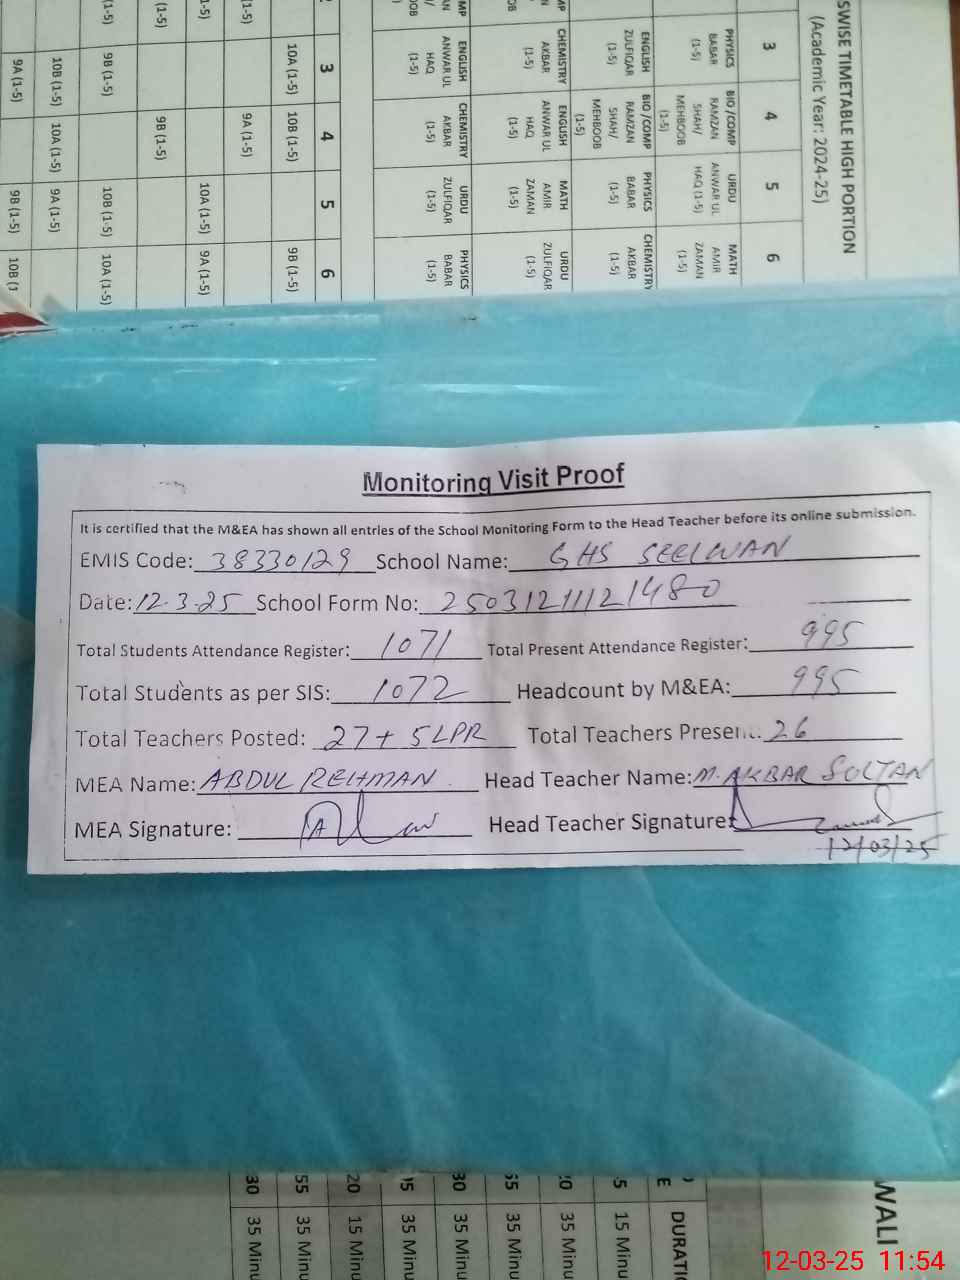 SWISE TIMETABLE HIGH PORTION
(Academic Year: 2024-25)
3 4 5 6
PHYSICS BABAR (1-5)
BIO /COMP RAMZAN SHAH/ MEHBOOB (1-5)
URDU ANWAR UL HAQ (1-5)
MATH AMIR ZAMAN (1-5)
ENGLISH ZULFIQAR (1-5)
BIO /COMP RAMZAN SHAH/ MEHBOOB (1-5)
PHYSICS BABAR (1-5)
CHEMISTRY AKBAR (1-5)
CHEMISTRY AKBAR (1-5)
ENGLISH ANWAR UL HAQ (1-5)
MATH AMIR ZAMAN (1-5)
URDU ZULFIQAR (1-5)
ENGLISH ANWAR UL HAQ (1-5)
CHEMISTRY AKBAR (1-5)
URDU ZULFIQAR (1-5)
PHYSICS BABAR (1-5)
3 4 5 6
10A (1-5) 10B (1-5) 9B (1-5)
9A (1-5)
10A (1-5) 9A (1-5)
9B (1-5)
9B (1-5) 10B (1-5) 10A (1-5)
10B (1-5) 10A (1-5) 9A (1-5)
9A (1-5) 9B (1-5) 10B (1
Monitoring Visit Proof
It is certified that the M&EA has shown all entries of the School Monitoring Form to the Head Teacher before its online submission.
EMIS Code: 38330129 School Name: GHS SEELWAN
Date: 12.3.25 School Form No: 25031211121480
Total Students Attendance Register: 1071 Total Present Attendance Register: 995
Total Students as per SIS: 1072 Headcount by M&EA: 995
Total Teachers Posted: 27+5LPR Total Teachers Present: 26
MEA Name: ABDUL REHMAN Head Teacher Name: M. AKBAR SOLTAN
MEA Signature: Head Teacher Signature:
12/03/25
WALI
DURATI
15 Minu
35 Minu
35 Minu
35 Minu
35 Minu
15 Minu
35 Minu
35 Minu
12-03-25 11:54